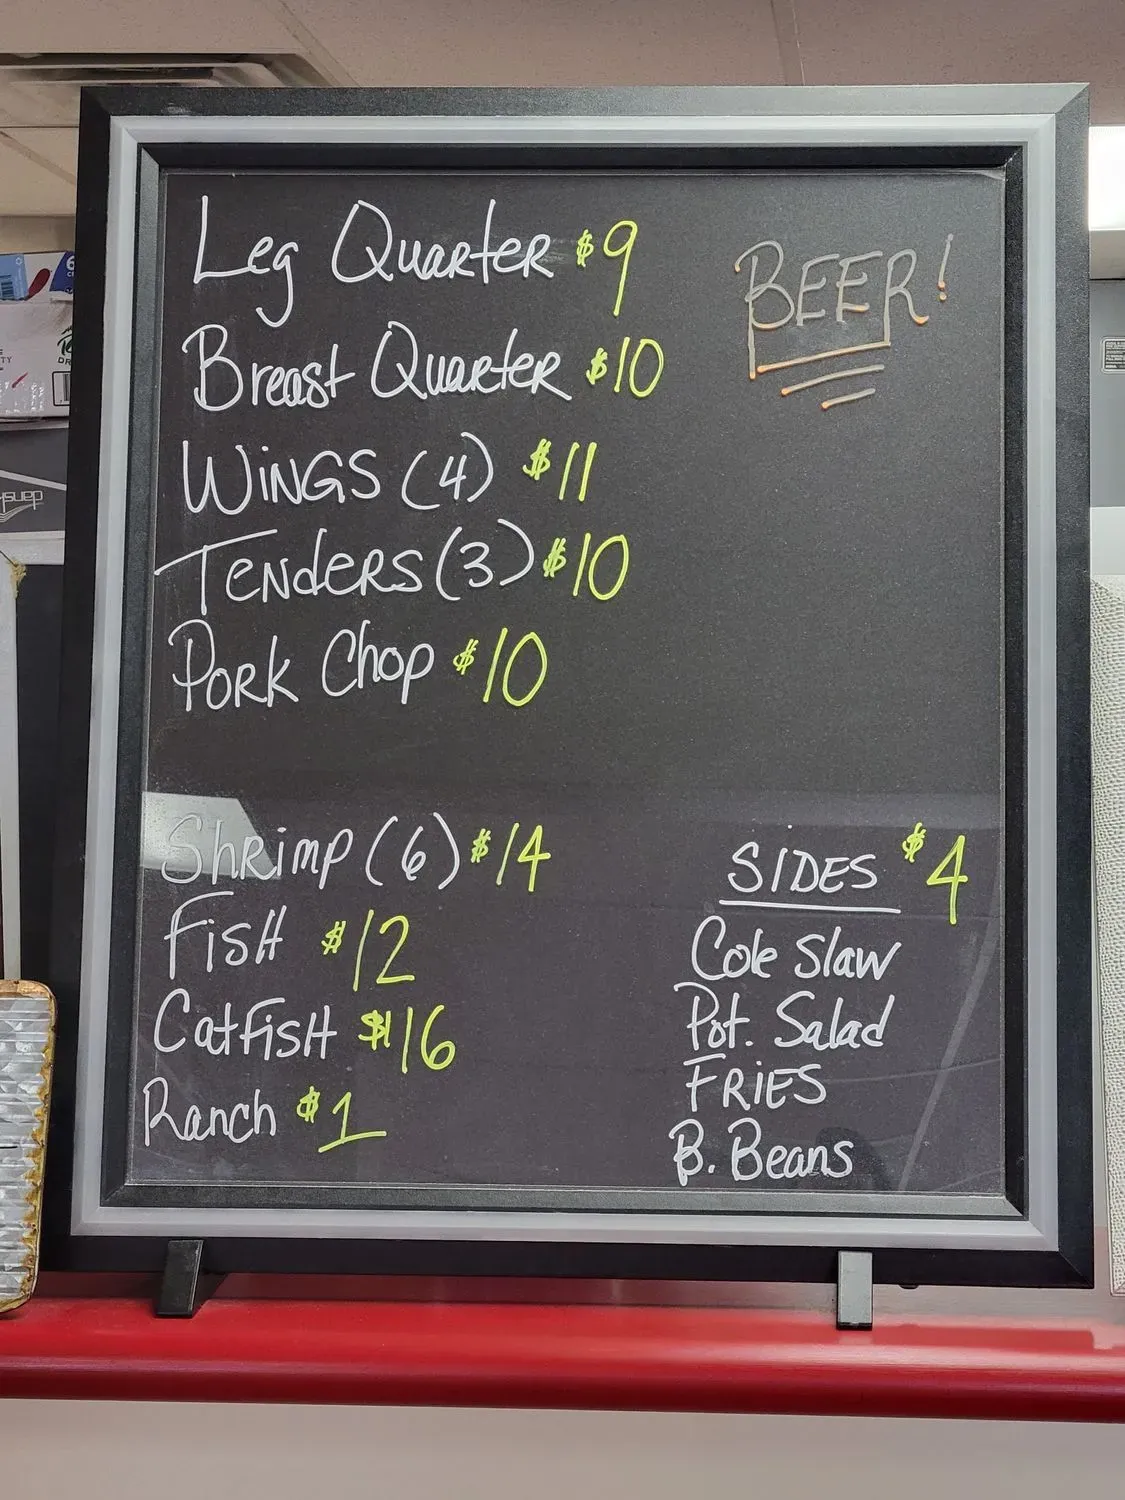 Leg Quarter $9
Breast Quarter $10
Wings (4) $11
Tenders (3) $10
Pork Chop $10
BEER!
Shrimp (6) $14
Fish $12
Catfish $16
Ranch $1
SIDES $4
Cole Slaw
Pot. Salad
FRIES
B. Beans